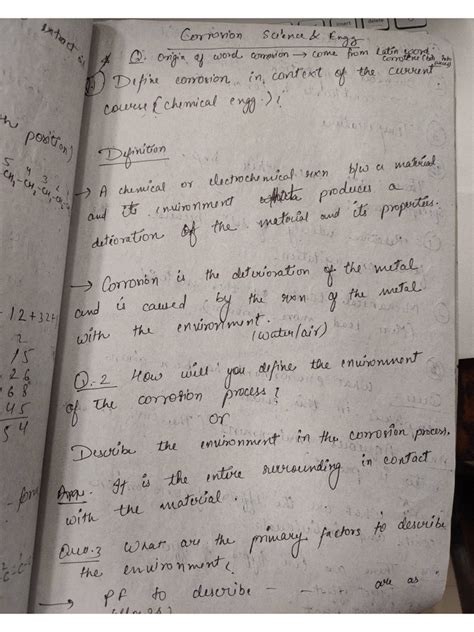 Corrosion Science & Engg
Q. Origin of word corrosion → come from Latin word
corrodere
Define corrosion in context of the current
course (chemical engg.)?
Definition
→ A chemical or electrochemical rxn b/w a material
and its invironment produces a
detioration of the material and its properties.
→ Corrosion is the deterioration of the metal
and is caused by the rxn of the metal
with the environment.
(water/air)
Q.2 How will you define the environment
of the corrosion process?
or
Describe the environment in the corrosion process.
Ans. It is the entire surrounding in contact
with the material.
Ques.3 What are the primary factors to describe
the environment?
→ PF to describe - - are as :
position)
5 4 3 2 1
CH3-CH2-CH
12+32+
2
15
26
68
45
54